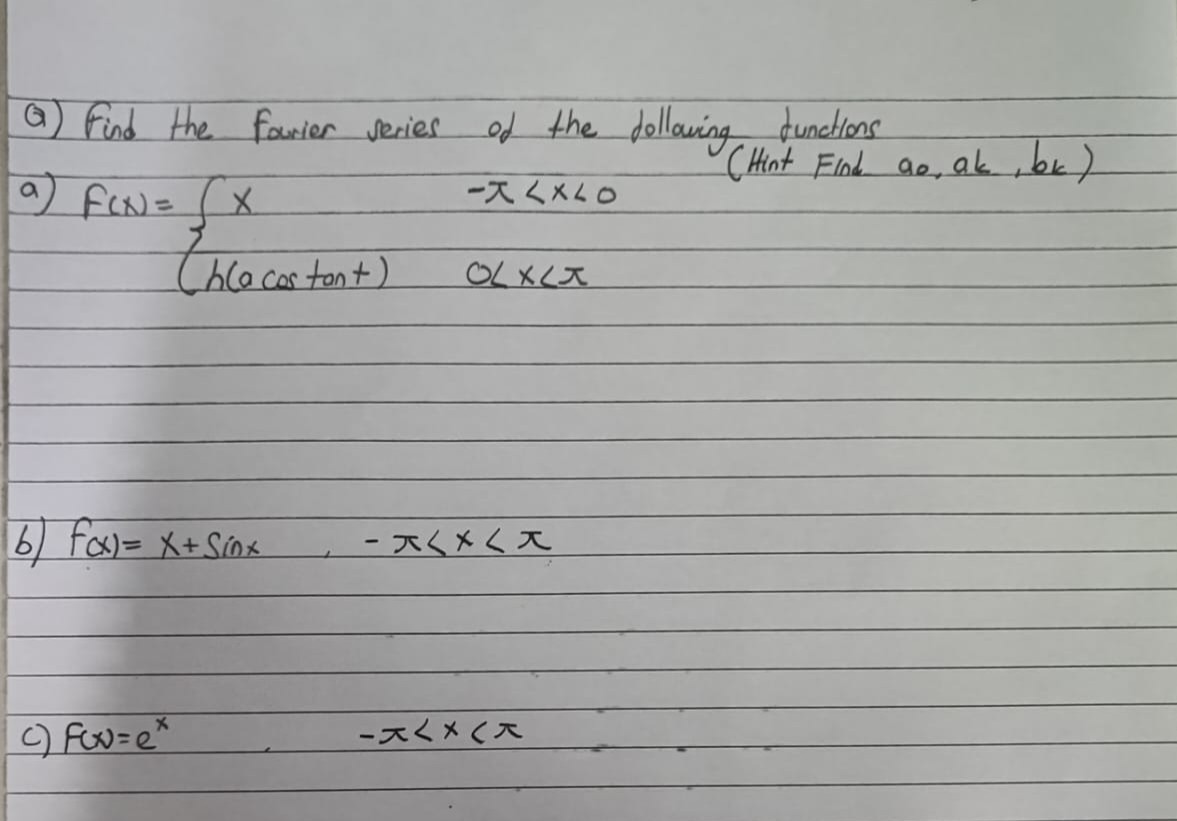 Q) Find the Fourier series of the following functions
(Hint Find a0, ak, bk)
a) F(x) = { x -π < x < 0
h(a constant) 0 < x < π
b) F(x) = x + Sinx , -π < x < π
c) F(x) = e^x , -π < x < π